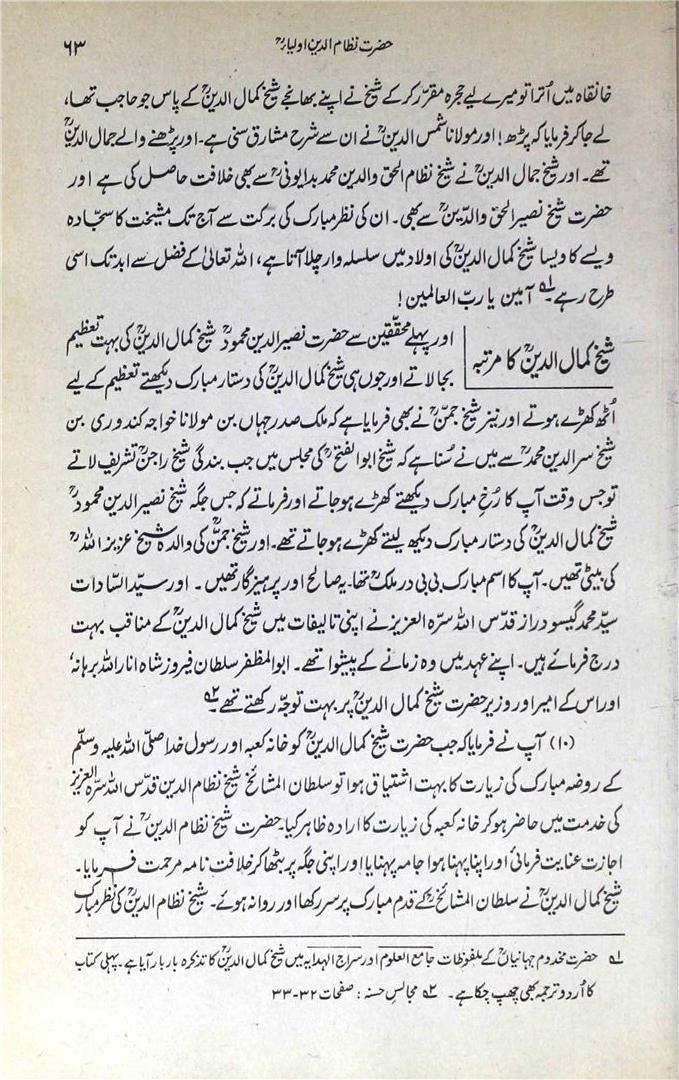 حضرت نظام الدین اولیاءؒ
۶۳
خانقاہ میں اُترا تو میرے لیے حجرہ مقرّر کرکے شیخ نے اپنے بھانجے شیخ کمال الدینؒ کے پاس جو حاجب تھا،
لے جا کر فرمایا کہ پڑھ! اور مولانا شمس الدینؒ نے ان سے شرح مشارق سنی ہے۔ اور پڑھنے والے جمال الدینؒ
تھے۔ اور شیخ جمال الدینؒ نے شیخ نظام الحق والدین محمد بدایونیؒ سے بھی خلافت حاصل کی ہے اور
حضرت شیخ نصیر الحق والدّین سے بھی۔ ان کی نظر مبارک کی برکت سے آج تک مشیخت کا سجّادہ
ویسے کا ویسا شیخ کمال الدینؒ کی اولاد میں سلسلہ وار چلا آتا ہے، اللہ تعالیٰ کے فضل سے ابد تک اسی
طرح رہے۔ ؎۱ آمین یا ربّ العالمین!
شیخ کمال الدینؒ کا مرتبہ
اور پہلے محقّقین سے حضرت نصیر الدین محمودؒ شیخ کمال الدینؒ کی بہت تعظیم
بجا لاتے اور جوں ہی شیخ کمال الدینؒ کی دستار مبارک دیکھتے تعظیم کے لیے
اُٹھ کھڑے ہوتے اور نیز شیخ جمّنؒ نے بھی فرمایا ہے کہ ملک صدر جہاں بن مولانا خواجہ کندوری بن
شیخ سر الدین محمدؒ سے میں نے سُنا ہے کہ شیخ ابو الفتحؒ کی مجلس میں جب بندگی شیخ راجنؒ تشریف لاتے
تو جس وقت آپ کا رُخِ مبارک دیکھتے کھڑے ہوجاتے اور فرماتے کہ جس جگہ شیخ نصیر الدین محمودؒ
شیخ کمال الدینؒ کی دستار مبارک دیکھ لیتے کھڑے ہوجاتے تھے۔ اور شیخ جمّنؒ کی والدہ شیخ عزیز اللہؒ
کی بیٹی تھیں۔ آپ کا اسم مبارک بی بی در ملکؒ تھا۔ یہ صالح اور پرہیزگار تھیں۔ اور سیّد السّادات
سیّد محمد گیسودراز قدّس اللہ سرّہ العزیز نے اپنی تالیفات میں شیخ کمال الدینؒ کے مناقب بہت
درج فرمائے ہیں۔ اپنے عہد میں وہ زمانے کے پیشوا تھے۔ ابوالمظفر سلطان فیروز شاہ انار اللہ برہانہ،
اور اس کے امیر اور وزیر حضرت شیخ کمال الدینؒ پر بہت توجّہ رکھتے تھے۔ ؎۲
(۱۰) آپ نے فرمایا کہ جب حضرت شیخ کمال الدینؒ کو خانہ کعبہ اور رسول خدا صلّی اللہ علیہ وسلّم
کے روضہ مبارک کی زیارت کا بہت اشتیاق ہوا تو سلطان المشائخ شیخ نظام الدین قدّس اللہ سرّہ العزیز
کی خدمت میں حاضر ہو کر خانہ کعبہ کی زیارت کا ارادہ ظاہر کیا۔ حضرت شیخ نظام الدینؒ نے آپ کو
اجازت عنایت فرمائی اور اپنا پہنا ہوا جامہ پہنایا اور اپنی جگہ پر بٹھا کر خلافت نامہ مرحمت فرمایا۔
شیخ کمال الدینؒ نے سلطان المشائخؒ کے قدم مبارک پر سر رکھا اور روانہ ہوئے۔ شیخ نظام الدینؒ کی نظر مبارک
؎۱ حضرت مخدوم جہانیاںؒ کے ملفوظات جامع العلوم اور سراج الہدایہ میں شیخ کمال الدینؒ کا تذکرہ بار بار آیا ہے۔ پہلی کتاب
کا اُردو ترجمہ بھی چھپ چکا ہے۔ ؎۲ مجالسِ حسنہ : صفحات ۳۲-۳۳